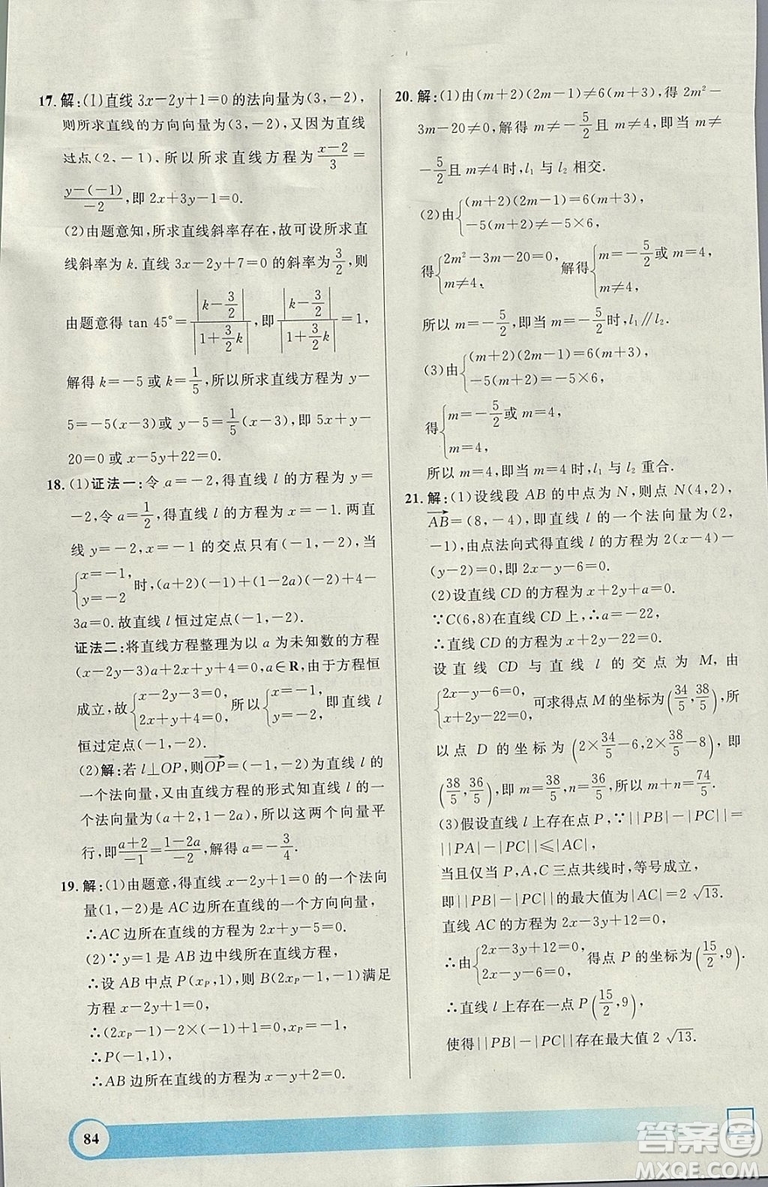 17. 解:(1)直线 3x-2y+1=0 的法向量为(3,-2),
则所求直线的方向向量为(3,-2),又因为直线
过点(2,-1),所以所求直线方程为 \frac{x-2}{3}=
\frac{y-(-1)}{-2},即 2x+3y-1=0.
(2)由题意知,所求直线斜率存在,故可设所求直
线斜率为 k.直线 3x-2y+7=0 的斜率为 \frac{3}{2},则
由题意得 tan 45°=|\frac{k-\frac{3}{2}}{1+\frac{3}{2}k}|,即|\frac{k-\frac{3}{2}}{1+\frac{3}{2}k}|=1,
解得 k=-5 或 k=\frac{1}{5},所以所求直线方程为 y-
5=-5(x-3)或 y-5=\frac{1}{5}(x-3),即 5x+y-
20=0 或 x-5y+22=0.
18. (1)证法一:令 a=-2,得直线 l 的方程为 y=
-2,令 a=\frac{1}{2},得直线 l 的方程为 x=-1.两直
线 y=-2 与 x=-1 的交点只有(-1,-2),当
{x=-1, y=-2 时,(a+2)(-1)+(1-2a)(-2)+4-
3a=0.故直线 l 恒过定点(-1,-2).
证法二:将直线方程整理为以 a 为未知数的方程
(x-2y-3)a+2x+y+4=0,a∈R,由于方程恒
成立,故{x-2y-3=0, 2x+y+4=0, 所以{x=-1, y=-2, 即直线 l
恒过定点(-1,-2).
(2)解:若 l⊥OP,则\overrightarrow{OP}=(-1,-2)是直线 l 的
一个法向量,又由直线方程的形式知直线 l 的一个
法向量为(a+2,1-2a),所以这两个向量平
行,即\frac{a+2}{-1}=\frac{1-2a}{-2},解得 a=-\frac{3}{4}.
19. 解:(1)由题意,得直线 x-2y-5=0 的一个法向
量(1,-2)是 AC 边所在直线的一个方向向量,
∴AC 边所在直线的方程为 2x+y-5=0.
(2)∵y=1 是 AB 边中线所在直线方程,
∴设 AB 中点 P(x_P,1),则 B(2x_P-1,-1)满足
方程 x-2y-1=0,
∴(2x_P-1)-2×(-1)-1=0,∴x_P=0.
∴P(-1,1),
∴AB 边所在直线的方程为 x-y+2=0.
20. 解:(1)由(m+2)(2m-1)≠6(m+3),得 2m²-
3m-20≠0,解得 m≠-\frac{5}{2}且 m≠4,即当 m≠
-\frac{5}{2}且 m≠4 时,l₁ 与 l₂ 相交.
(2)由{(m+2)(2m-1)=6(m+3), -5(m+2)≠-5×6,
得{2m²-3m-20=0, m≠4. 解得{m=-\frac{5}{2}或 m=4, m≠4,
所以 m=-\frac{5}{2},即当 m=-\frac{5}{2}时,l₁∥l₂.
(3)由{(m+2)(2m-1)=6(m+3), -5(m+2)=-5×6,
得{m=-\frac{5}{2}或 m=4, m=4.
所以 m=4,即当 m=4 时,l₁ 与 l₂ 重合.
21. 解:(1)设线段 AB 的中点为 N,则点 N(4,2),
\overrightarrow{AB}=(8,-4),即直线 l 的一个法向量为(2,
-1),由点法向式得直线 l 的方程为 2(x-4)-
(y-2)=0,即 2x-y-6=0.
(2)设直线 CD 的方程为 x+2y+a=0,
∵C(6,8)在直线 CD 上,∴a=-22,
∴直线 CD 的方程为 x+2y-22=0.
设直线 CD 与直线 l 的交点为 M,由
{2x-y-6=0, x+2y-22=0, 可求得点 M 的坐标为(\frac{34}{5},\frac{38}{5}),所
以点 D 的坐标为(2×\frac{34}{5}-6,2×\frac{38}{5}-8),即
(\frac{38}{5},\frac{36}{5}),即 m=\frac{38}{5},n=\frac{36}{5},所以 m+n=\frac{74}{5}.
(3)假设直线 l 上存在点 P,∵||PB|-|PC||=
||PA|-|PC||≤|AC|=2\sqrt{13},
当且仅当 P,A,C 三点共线时,等号成立,
即||PB|-|PC||的最大值为 2\sqrt{13}.
直线 AC 的方程为 2x-3y+12=0,
∴由{2x-3y+12=0, 2x-y-6=0, 得点 P 的坐标为(\frac{15}{2},9),
∴直线 l 上存在一点 P(\frac{15}{2},9),
使得||PB|-|PC||存在最大值 2\sqrt{13}.
84
答案圈
MXQE.COM